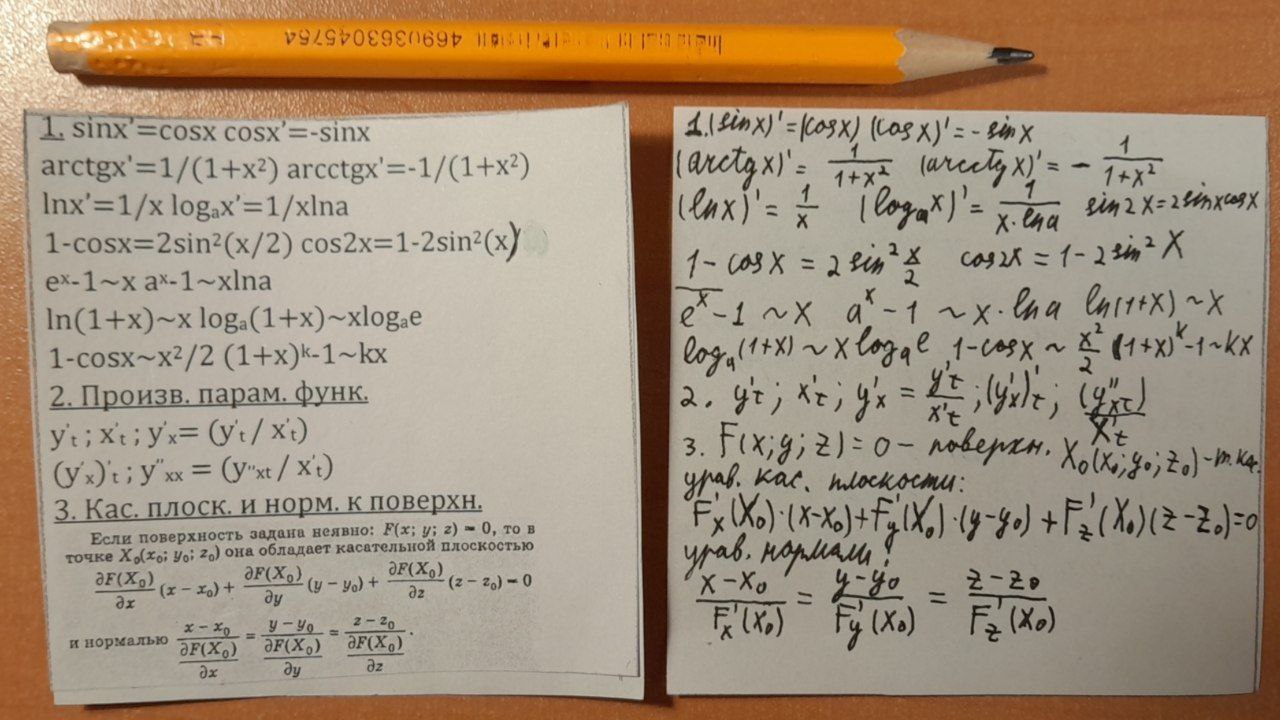 4690363045754
1. sinx'=cosx cosx'=-sinx
arctgx'=1/(1+x²) arcctgx'=-1/(1+x²)
lnx'=1/x logₐx'=1/xlna
1-cosx=2sin²(x/2) cos2x=1-2sin²(x)
eˣ-1~x aˣ-1~xlna
ln(1+x)~x logₐ(1+x)~xlogₐe
1-cosx~x²/2 (1+x)ᵏ-1~kx
2. Произв. парам. функ.
y'ₜ ; x'ₜ ; y'ₓ= (y'ₜ / x'ₜ)
(y'ₓ)'ₜ ; y''ₓₓ = (y''ₓₜ / x'ₜ)
3. Кас. плоск. и норм. к поверхн.
Если поверхность задана неявно: F(x; y; z) = 0, то в
точке X₀(x₀; y₀; z₀) она обладает касательной плоскостью
∂F(X₀)/∂x (x − x₀) + ∂F(X₀)/∂y (y − y₀) + ∂F(X₀)/∂z (z − z₀) = 0
и нормалью (x − x₀)/(∂F(X₀)/∂x) = (y − y₀)/(∂F(X₀)/∂y) = (z − z₀)/(∂F(X₀)/∂z).
1. (sinx)' = (cosx) (cosx)' = - sinx
(arctgx)' = 1/(1+x²) (arcctgx)' = - 1/(1+x²)
(lnx)' = 1/x (logₐx)' = 1/(x·lna) sin2x=2sinxcosx
1-cosx = 2sin² x/2 cos2x = 1-2sin²x
eˣ-1 ~ x aˣ-1 ~ x·lna ln(1+x) ~ x
logₐ(1+x) ~ xlogₐe 1-cosx ~ x²/2 (1+x)ᵏ-1~kx
2. y'ₜ ; x'ₜ ; y'ₓ = y'ₜ/x'ₜ ; (y'ₓ)'ₜ ; (y''ₓₜ)/x'ₜ
3. F(x;y;z)=0 – поверхн. X₀(x₀;y₀;z₀) – т. кас.
урав. кас. плоскости:
F'ₓ(X₀)·(x-x₀)+F'y(X₀)·(y-y₀)+F'z(X₀)(z-z₀)=0
урав. нормали:
(x-x₀)/F'ₓ(X₀) = (y-y₀)/F'y(X₀) = (z-z₀)/F'z(X₀)